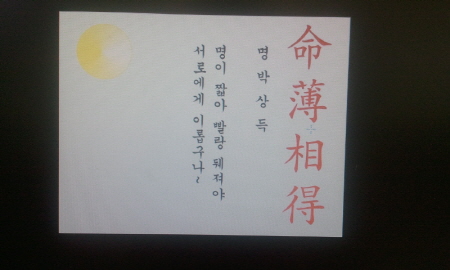 命薄相得
명박상득
명이 짧아 빨랑 뒈져야
서로에게 이롭구나~